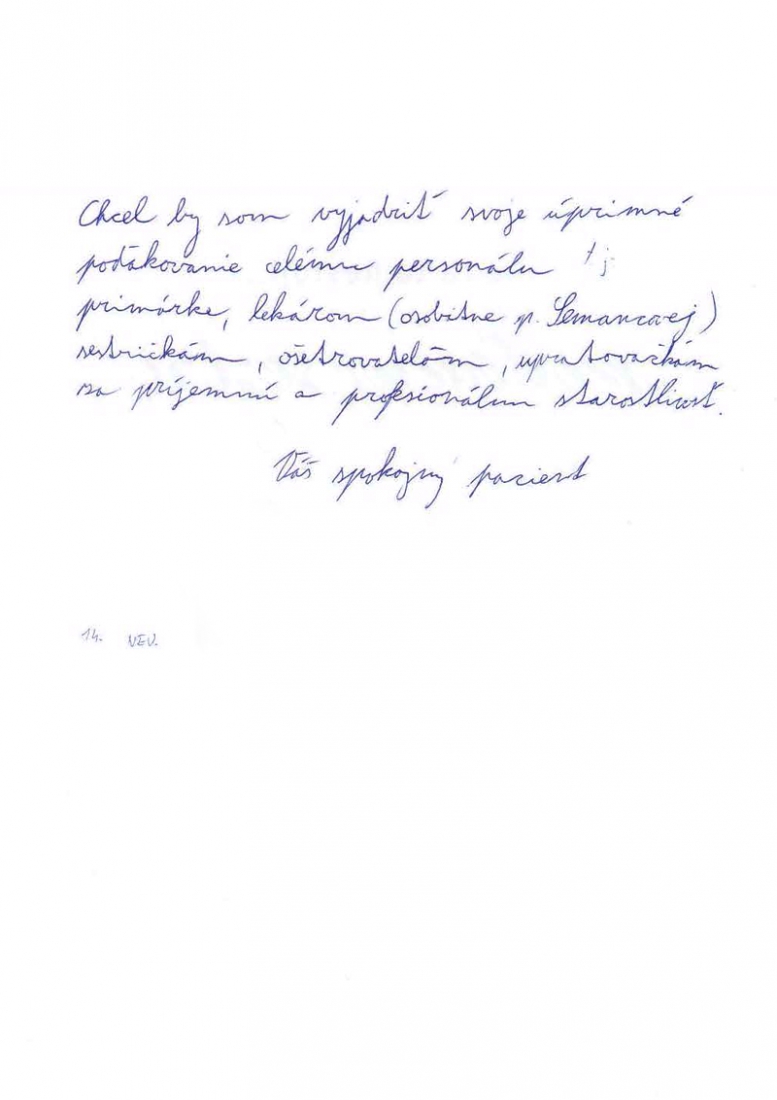 Chcel by som vyjadriť svoje úprimné
poďakovanie celému personálu tj.
primárke, lekárom (osobitne p. Semancovej)
sestričkám, ošetrovateľom, upratovačkám
za príjemnú a profesionálnu starostlivosť.
Váš spokojný pacient
14. NEU.